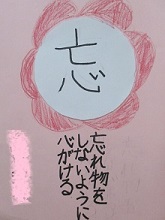 忘
忘れ物を
しないように
心がける